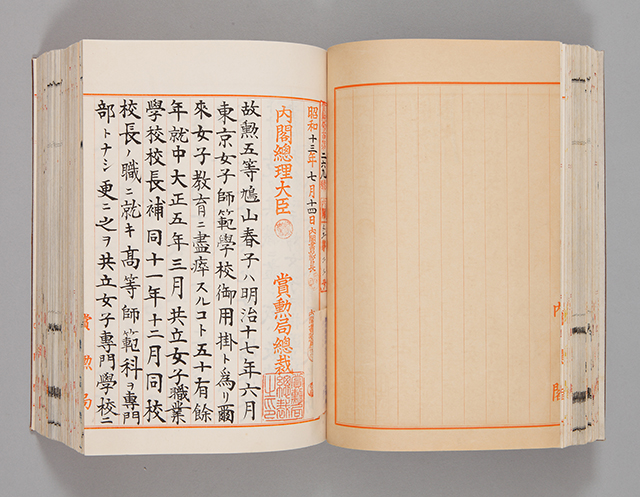 昭和十三年七月十四日
内閣總理大臣
賞勲局總裁
故勲五等鳩山春子ハ明治十七年六月
東京女子師範學校御用掛ト為リ爾
來女子教育ニ盡瘁スルコト五十有餘
年就中大正五年三月共立女子職業
學校校長補同十一年十二月同校
校長ノ職ニ就キ髙等師範科ヲ專門
部トナシ更ニ之ヲ共立女子專門學校ニ
賞勲局
内閣